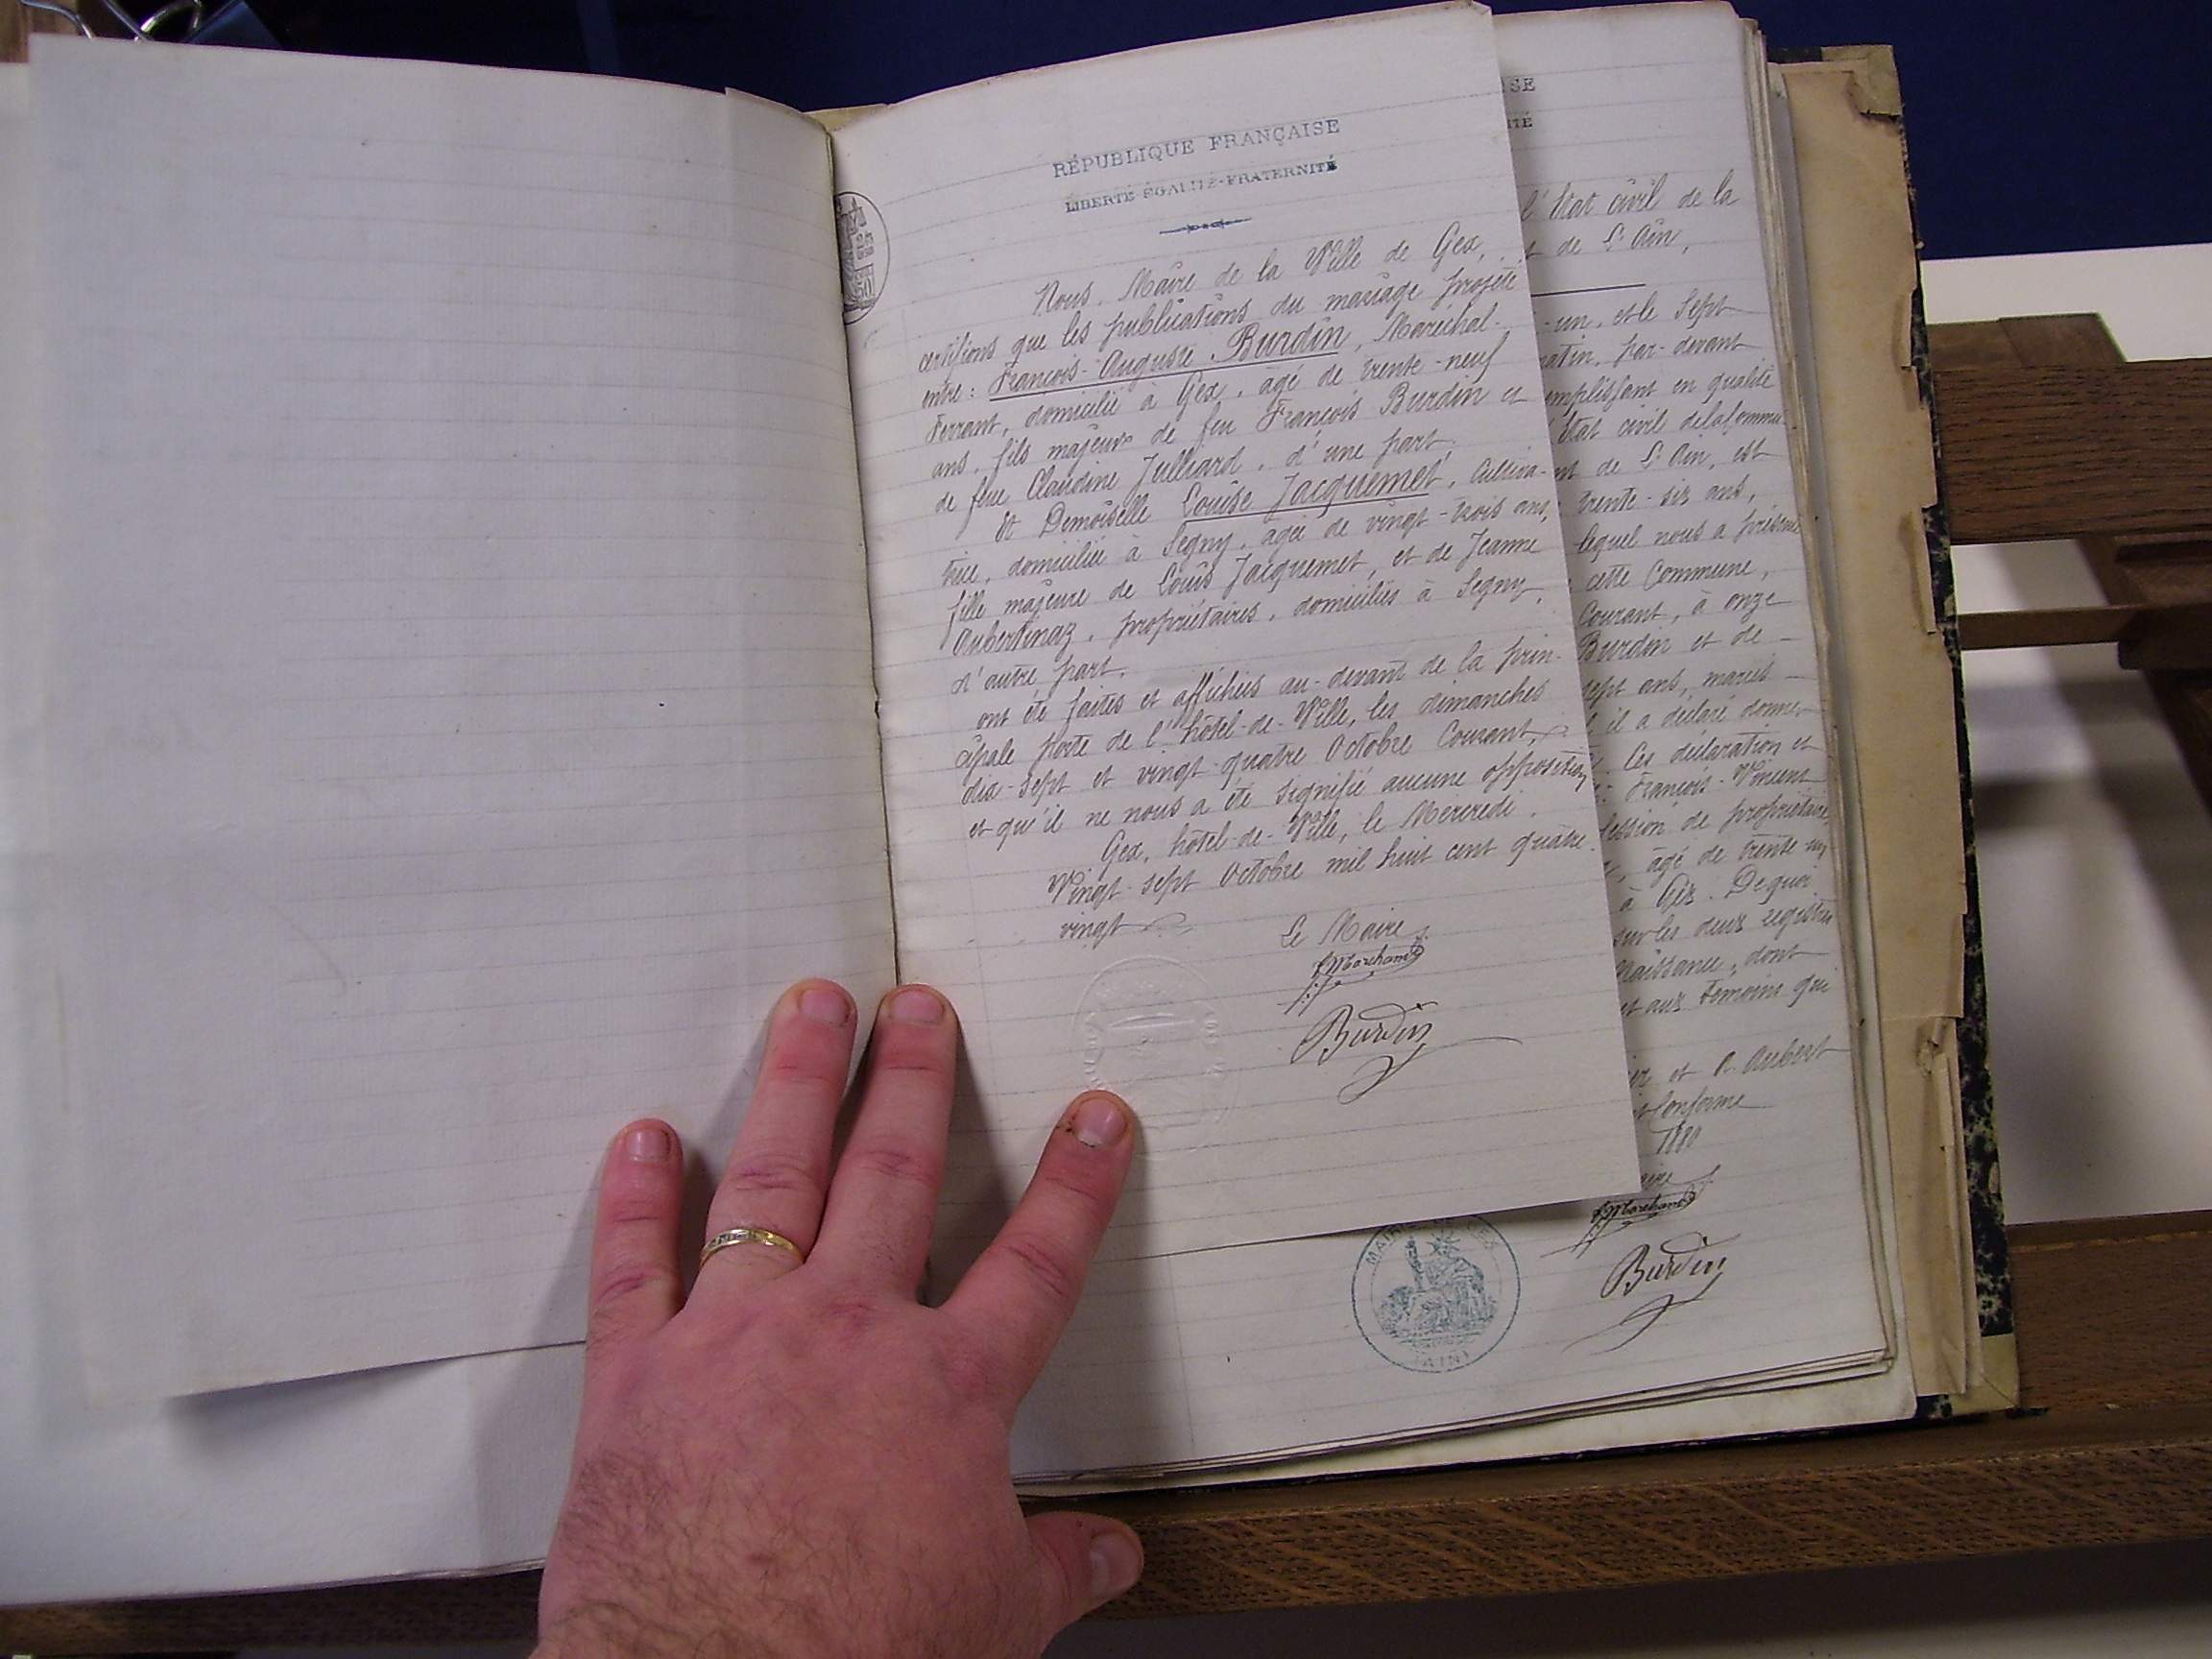 RÉPUBLIQUE FRANÇAISE
LIBERTÉ-ÉGALITÉ-FRATERNITÉ
Nous, Maire de la Ville de Gex,
certifions que les publications du mariage projeté
entre : François-Auguste Burdin, Maréchal-
Ferrant, domicilié à Gex, âgé de trente-neuf
ans, fils majeur de feu François Burdin et
de feue Claudine Julliard, d'une part,
Et Demoiselle Louise Jacquemet, Cultiva-
trice, domiciliée à Segny, âgée de vingt-trois ans,
fille majeure de Louis Jacquemet, et de Jeanne
Aubertinaz, propriétaires, domiciliés à Segny,
d'autre part,
ont été faites et affichées au-devant de la prin-
cipale porte de l'hôtel-de-Ville, les dimanches
dix-sept et vingt-quatre Octobre Courant,
et qu'il ne nous a été signifié aucune opposition
Gex, hôtel-de-Ville, le Mercredi
Vingt-sept Octobre mil huit cent quatre
vingt
Le Maire
Marchand
Burdin
50
SE
ITÉ
l'État civil de la
t de l'Ain,
-un, et le Sept
matin, par-devant
emplissant en qualité
État civil de la Commu-
nt de l'Ain, est
trente-six ans,
lequel nous a présenté
cette Commune,
Courant, à onze
Burdin et de
sept ans, mariés
il a déclaré donner
Ces déclaration et
François-Vincent
fession de propriétaire,
âgé de trente-un
à Gex. De quoi
sur les deux registres
Naissance, dont
et aux témoins qui
et A. Aubert
Conforme
1880
Marchand
Burdin
MAIRIE DE GEX
(AIN)